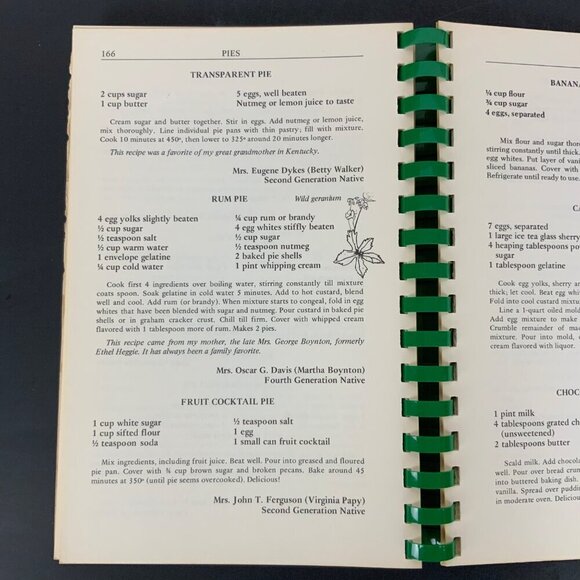 166 PIES
TRANSPARENT PIE
2 cups sugar 5 eggs, well beaten
1 cup butter Nutmeg or lemon juice to taste
Cream sugar and butter together. Stir in eggs. Add nutmeg or lemon juice,
mix thoroughly. Line individual pie pans with thin pastry; fill with mixture.
Cook 10 minutes at 450º, then lower to 325º around 20 minutes longer.
This recipe was a favorite of my great grandmother in Kentucky.
Mrs. Eugene Dykes (Betty Walker)
Second Generation Native
RUM PIE Wild geranium
4 egg yolks slightly beaten ¼ cup rum or brandy
½ cup sugar 4 egg whites stiffly beaten
½ teaspoon salt ½ cup sugar
½ cup warm water ½ teaspoon nutmeg
1 envelope gelatine 2 baked pie shells
¼ cup cold water 1 pint whipping cream
Cook first 4 ingredients over boiling water, stirring constantly till mixture
coats spoon. Soak gelatine in cold water 5 minutes. Add to hot custard, blend
well and cool. Add rum (or brandy). When mixture starts to congeal, fold in egg
whites that have been blended with sugar and nutmeg. Pour custard in baked pie
shells or in graham cracker crust. Chill till firm. Cover with whipped cream
flavored with 1 tablespoon more of rum. Makes 2 pies.
This recipe came from my mother, the late Mrs. George Boynton, formerly
Ethel Heggie. It has always been a family favorite.
Mrs. Oscar G. Davis (Martha Boynton)
Fourth Generation Native
FRUIT COCKTAIL PIE
1 cup white sugar ½ teaspoon salt
1 cup sifted flour 1 egg
½ teaspoon soda 1 small can fruit cocktail
Mix ingredients, including fruit juice. Beat well. Pour into greased and floured
pie pan. Cover with ¾ cup brown sugar and broken pecans. Bake around 45
minutes at 350º (until pie seems overcooked). Delicious!
Mrs. John T. Ferguson (Virginia Papy)
Second Generation Native
BANANA
¼ cup flour
¾ cup sugar
4 eggs, separated
Mix flour and sugar
stirring constantly until thick.
egg whites. Put layer of
sliced bananas. Cover with
Refrigerate until ready to
7 eggs, separated
1 large ice tea glass sherry
4 heaping tablespoons
sugar
1 tablespoon gelatine
Cook egg yolks, sherry
thick; let cool. Beat egg
Fold into cool custard
Line a 1-quart oiled
Add egg mixture to make
Crumble remainder of
mixture. Pour into mold,
cream flavored with liquor.
1 pint milk
4 tablespoons grated
(unsweetened)
2 tablespoons butter
Scald milk. Add
well. Pour over bread
into buttered baking dish.
vanilla. Spread over
in moderate oven.